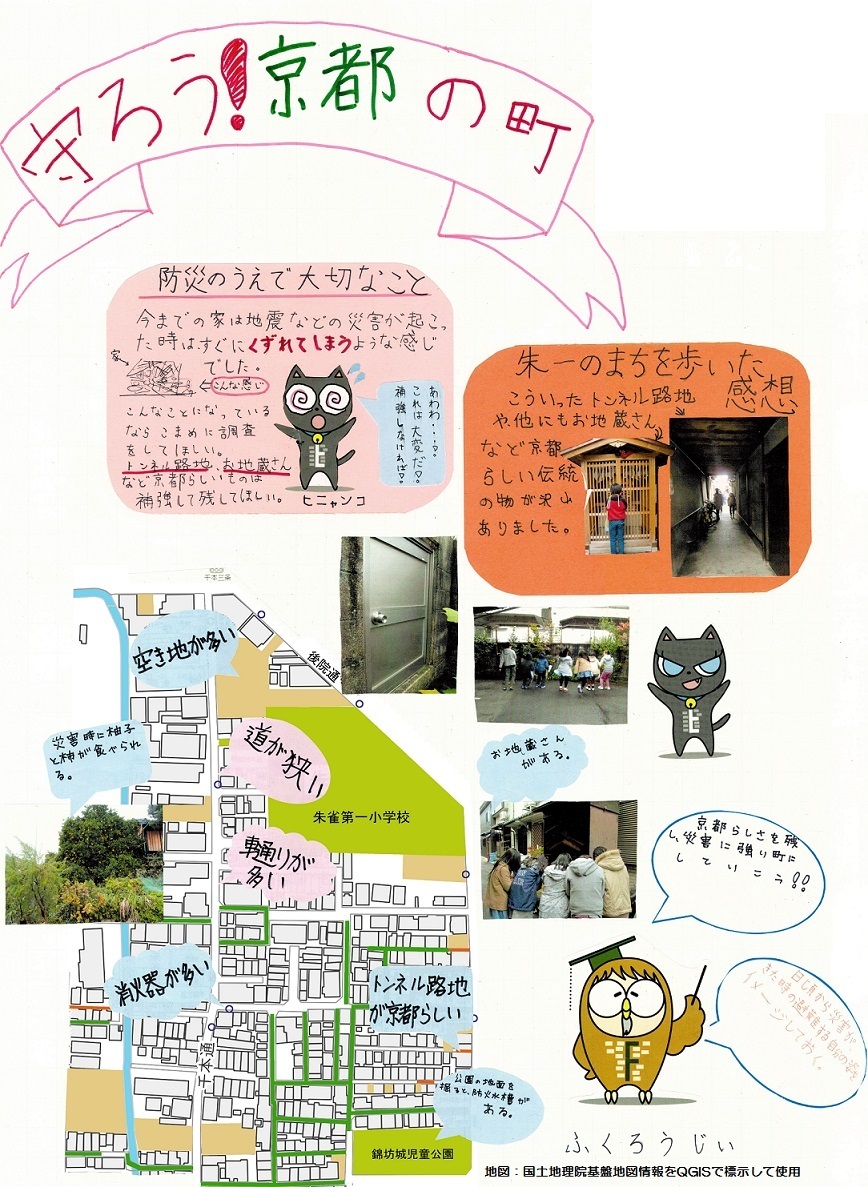 守ろう!京都の町
防災のうえで大切なこと
今までの家は地震などの災害が起こっ
た時はすぐにくずれてしまうような感じ
でした。
家
こんな感じ
こんなことになっている
ならこまめに調査
をしてほしい。
トンネル路地、お地蔵さん
など京都らしいものは
補強して残してほしい。
あわわ・・・?
これは大変だ?
補強しなければ?
ヒニャンコ
朱一のまちを歩いた
感想
こういったトンネル路地
や、他にもお地蔵さん
など京都
らしい伝統
の物が沢山
ありました。
千本三条
後院通
空き地が多い
道が狭い
災害時に柚子
と柿が食べられ
る。
朱雀第一小学校
車通りが
多い
消火器が多い
トンネル路地
が京都らしい
千本通
公園の地面を
掘ると、防火水槽が
ある。
錦坊城児童公園
お地蔵さん
がある。
京都らしさを残
し、災害に強い町に
していこう!!
日頃から災害が
おきた時の避難する自分の姿を
イメージしておく。
ふくろうじい
地図:国土地理院基盤地図情報をQGISで標示して使用